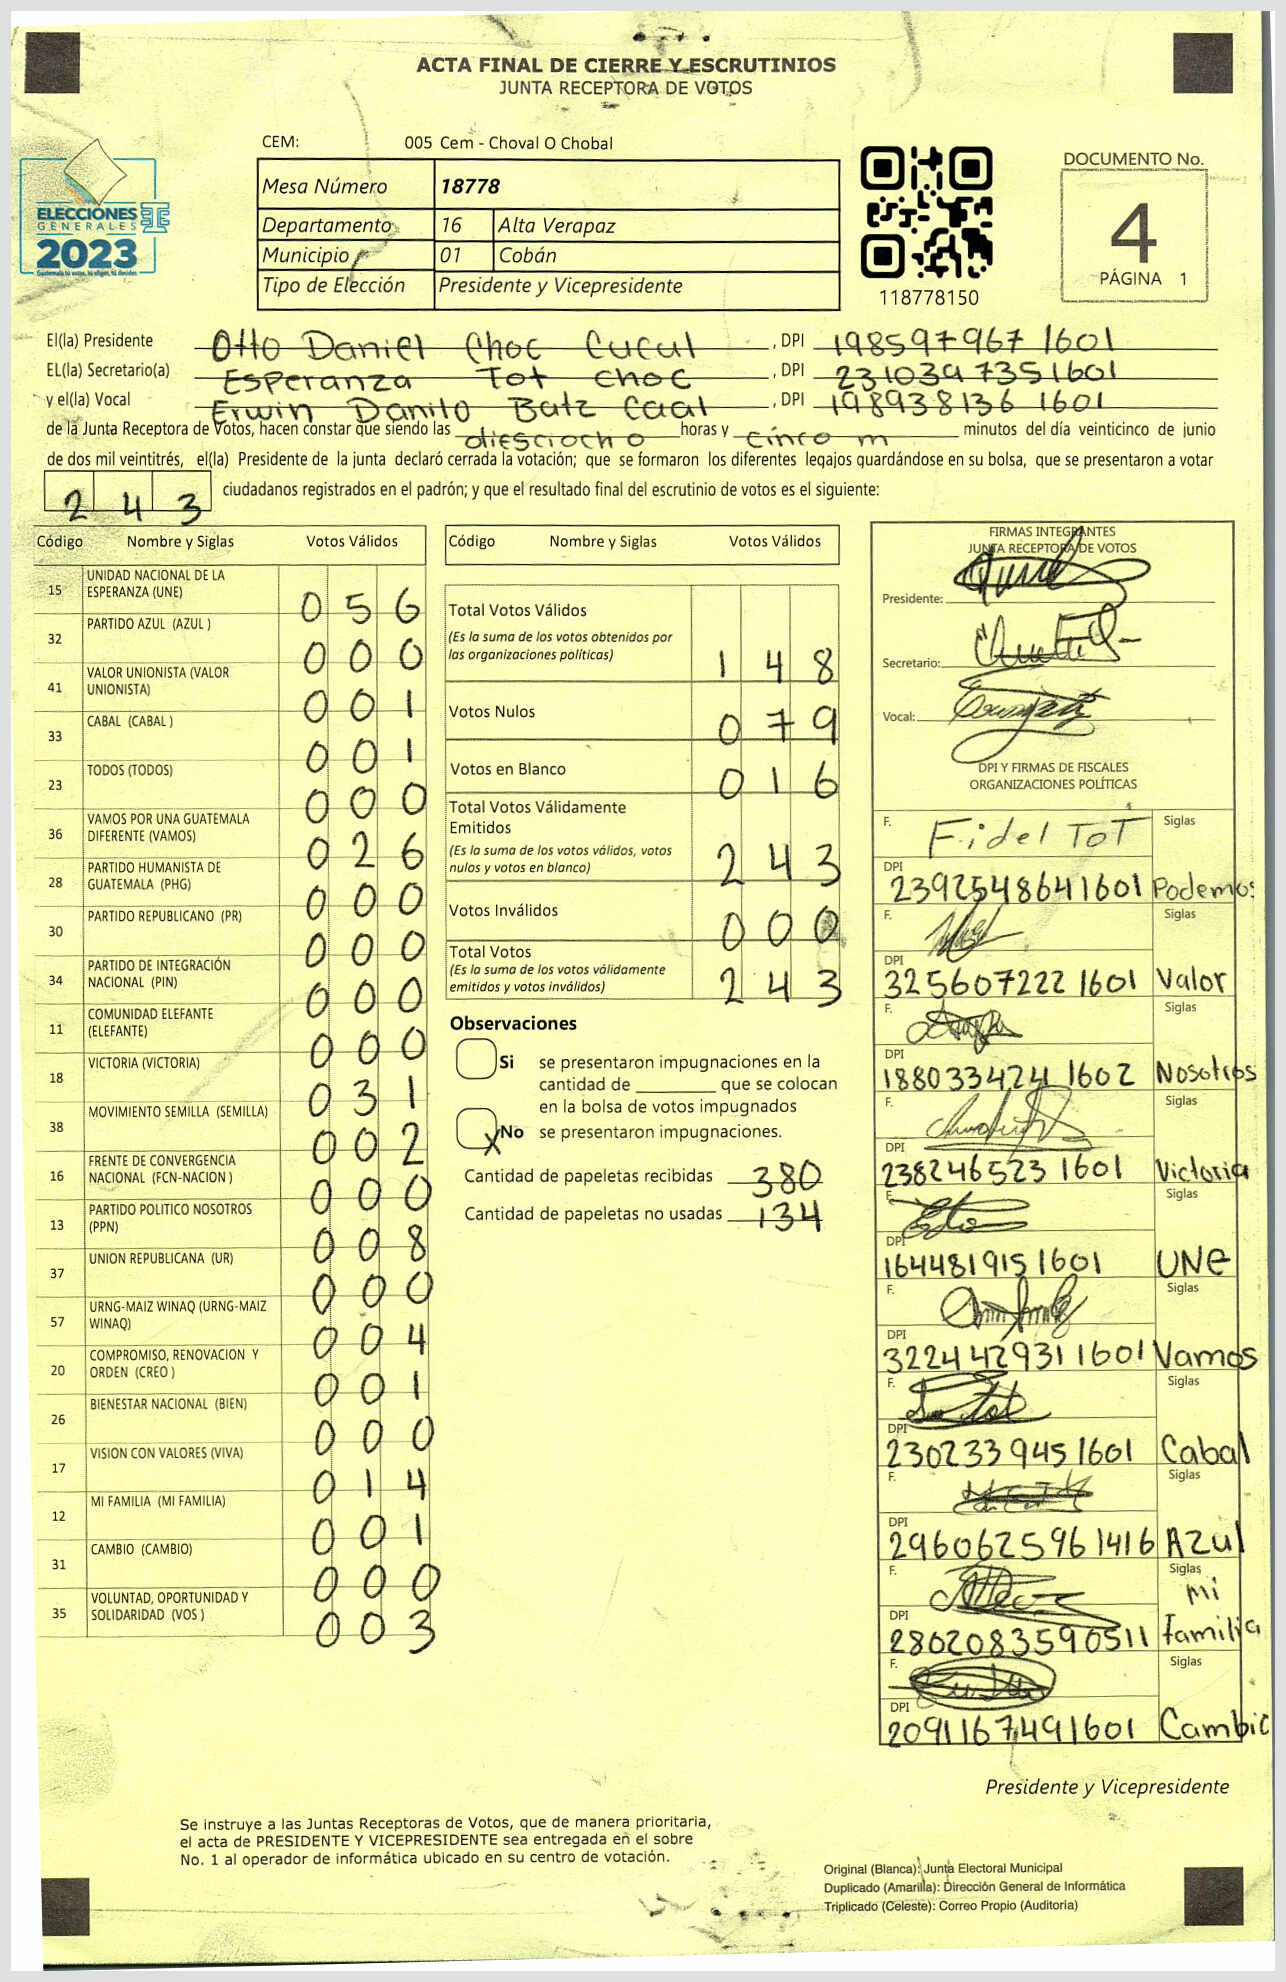 ACTA FINAL DE CIERRE Y ESCRUTINIOS
JUNTA RECEPTORA DE VOTOS
CEM: 005 Cem - Choval O Chobal
Mesa Número 18778
Departamento 16 Alta Verapaz
Municipio 01 Cobán
Tipo de Elección Presidente y Vicepresidente
ELECCIONES
GENERALES
2023
Guatemala tú votas, tú eliges, tú decides
118778150
DOCUMENTO No.
4
PÁGINA 1
El(la) Presidente Otto Daniel Choc Cucul, DPI 198597967 1601
EL(la) Secretario(a) Esperanza Tot choc, DPI 2310397351601
y el(la) Vocal Erwin Danilo Batz Caal, DPI 198938136 1601
de la Junta Receptora de Votos, hacen constar que siendo las diesciocho horas y cinco m minutos del día veinticinco de junio
de dos mil veintitrés, el(la) Presidente de la junta declaró cerrada la votación; que se formaron los diferentes legajos guardándose en su bolsa, que se presentaron a votar
243 ciudadanos registrados en el padrón; y que el resultado final del escrutinio de votos es el siguiente:
Código Nombre y Siglas Votos Válidos
15 UNIDAD NACIONAL DE LA ESPERANZA (UNE) 056
32 PARTIDO AZUL (AZUL ) 000
41 VALOR UNIONISTA (VALOR UNIONISTA) 001
33 CABAL (CABAL ) 001
23 TODOS (TODOS) 000
36 VAMOS POR UNA GUATEMALA DIFERENTE (VAMOS) 026
28 PARTIDO HUMANISTA DE GUATEMALA (PHG) 000
30 PARTIDO REPUBLICANO (PR) 000
34 PARTIDO DE INTEGRACIÓN NACIONAL (PIN) 000
11 COMUNIDAD ELEFANTE (ELEFANTE) 000
18 VICTORIA (VICTORIA) 031
38 MOVIMIENTO SEMILLA (SEMILLA) 002
16 FRENTE DE CONVERGENCIA NACIONAL (FCN-NACION ) 000
13 PARTIDO POLITICO NOSOTROS (PPN) 008
37 UNION REPUBLICANA (UR) 000
57 URNG-MAIZ WINAQ (URNG-MAIZ WINAQ) 004
20 COMPROMISO, RENOVACION Y ORDEN (CREO ) 001
26 BIENESTAR NACIONAL (BIEN) 000
17 VISION CON VALORES (VIVA) 014
12 MI FAMILIA (MI FAMILIA) 001
31 CAMBIO (CAMBIO) 000
35 VOLUNTAD, OPORTUNIDAD Y SOLIDARIDAD (VOS ) 003
Código Nombre y Siglas Votos Válidos
Total Votos Válidos 148
(Es la suma de los votos obtenidos por
las organizaciones políticas)
Votos Nulos 079
Votos en Blanco 016
Total Votos Válidamente
Emitidos 243
(Es la suma de los votos válidos, votos
nulos y votos en blanco)
Votos Inválidos 000
Total Votos 243
(Es la suma de los votos válidamente
emitidos y votos inválidos)
Observaciones
Si se presentaron impugnaciones en la
cantidad de ________ que se colocan
en la bolsa de votos impugnados
X No se presentaron impugnaciones.
Cantidad de papeletas recibidas 380
Cantidad de papeletas no usadas 134
FIRMAS INTEGRANTES
JUNTA RECEPTORA DE VOTOS
Presidente:
Secretario:
Vocal:
DPI Y FIRMAS DE FISCALES
ORGANIZACIONES POLÍTICAS
F. Fidel Tot Siglas
DPI 2392548641601 Podemos
F. Siglas
DPI 325607222 1601 Valor
F. Siglas
DPI 1880334241 1602 Nosotros
F. Siglas
DPI 238246523 1601 Victoria
F. Siglas
DPI 164481915 1601 UNE
F. Siglas
DPI 3224429311601 Vamos
F. Siglas
DPI 230233945 1601 Cabal
F. Siglas
DPI 2960625961416 Azul
F. Siglas
DPI 2802083590511 mi familia
F. Siglas
DPI 2091167491601 Cambio
Presidente y Vicepresidente
Se instruye a las Juntas Receptoras de Votos, que de manera prioritaria,
el acta de PRESIDENTE Y VICEPRESIDENTE sea entregada en el sobre
No. 1 al operador de informática ubicado en su centro de votación.
Original (Blanca): Junta Electoral Municipal
Duplicado (Amarilla): Dirección General de Informática
Triplicado (Celeste): Correo Propio (Auditoria)